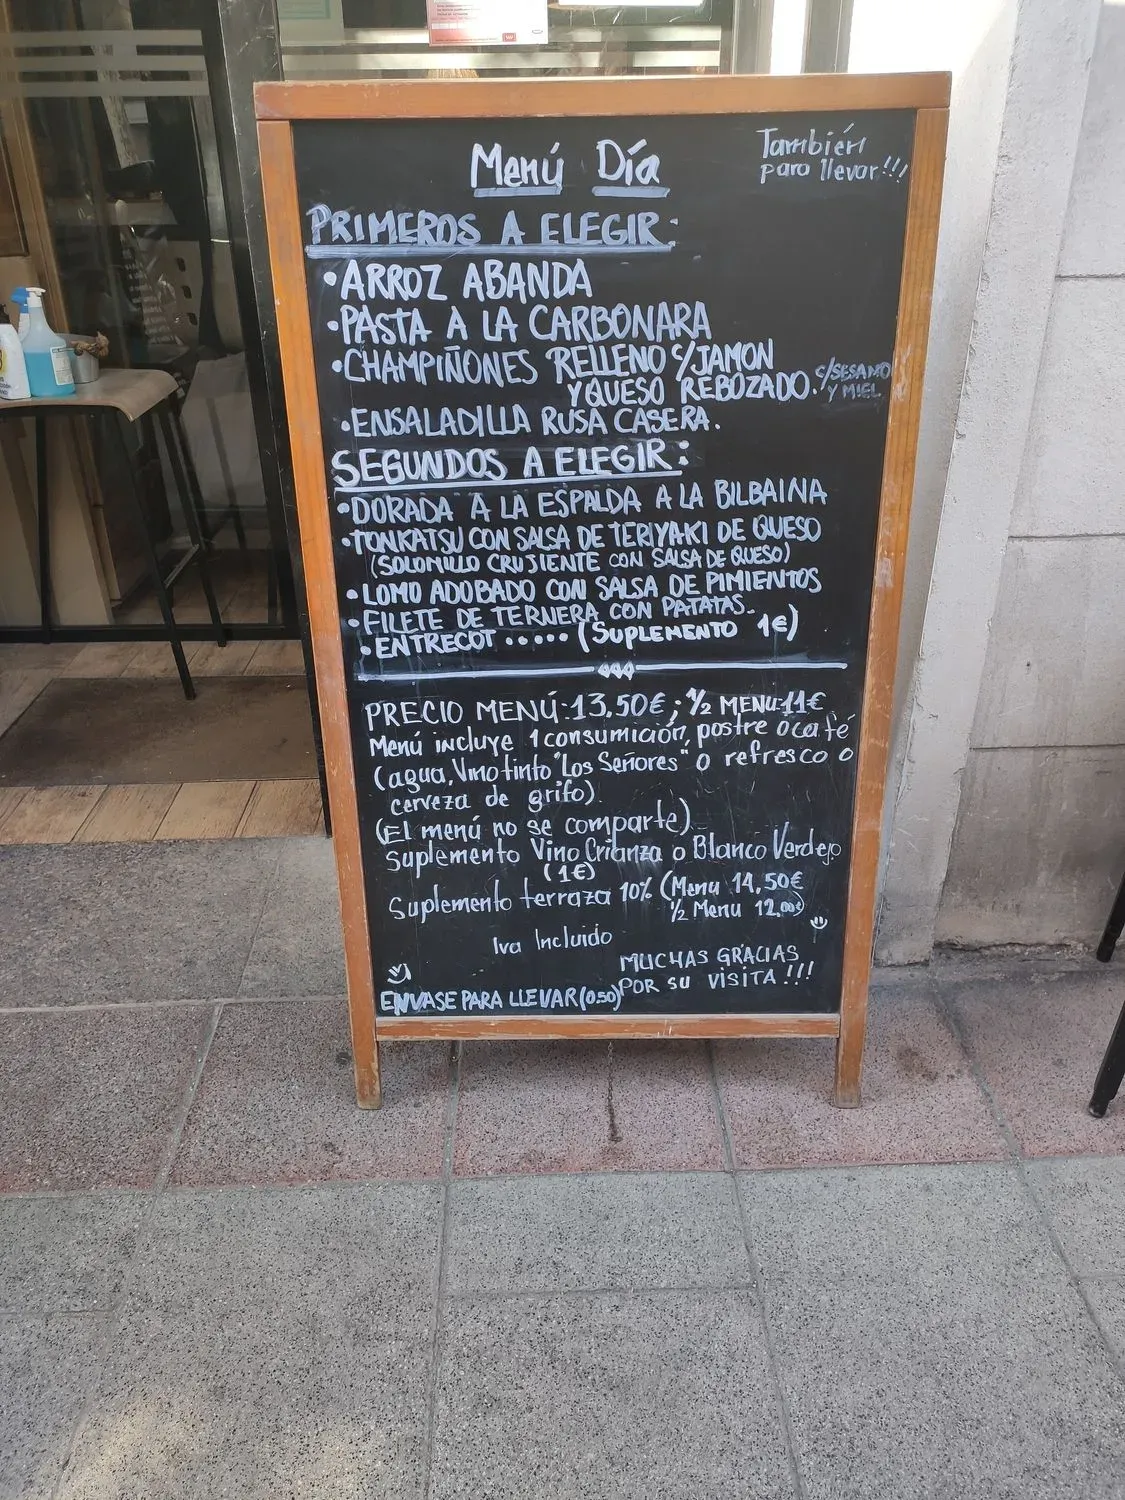 Menú Día
También
para llevar!!!
PRIMEROS A ELEGIR:
•ARROZ ABANDA
•PASTA A LA CARBONARA
•CHAMPIÑONES RELLENO C/JAMON
Y QUESO REBOZADO. C/SESAMO
Y MIEL
•ENSALADILLA RUSA CASERA.
SEGUNDOS A ELEGIR:
•DORADA A LA ESPALDA A LA BILBAINA
•TONKATSU CON SALSA DE TERIYAKI DE QUESO
(SOLOMILLO CRUJIENTE CON SALSA DE QUESO)
•LOMO ADOBADO CON SALSA DE PIMIENTOS
•FILETE DE TERNERA CON PATATAS.
•ENTRECOT ..... (SUPLEMENTO 1€)
PRECIO MENÚ:13.50€; 1/2 MENU:11€
Menú incluye 1 consumición, postre o café
(agua, Vino tinto "Los Señores" o refresco o
cerveza de grifo).
(El menú no se comparte)
Suplemento Vino Crianza o Blanco Verdejo
(1€)
Suplemento terraza 10% (Menu 14,50€
1/2 Menu 12.00€)
Iva Incluido
MUCHAS GRACIAS
POR SU VISITA!!!
ENVASE PARA LLEVAR (0.50)